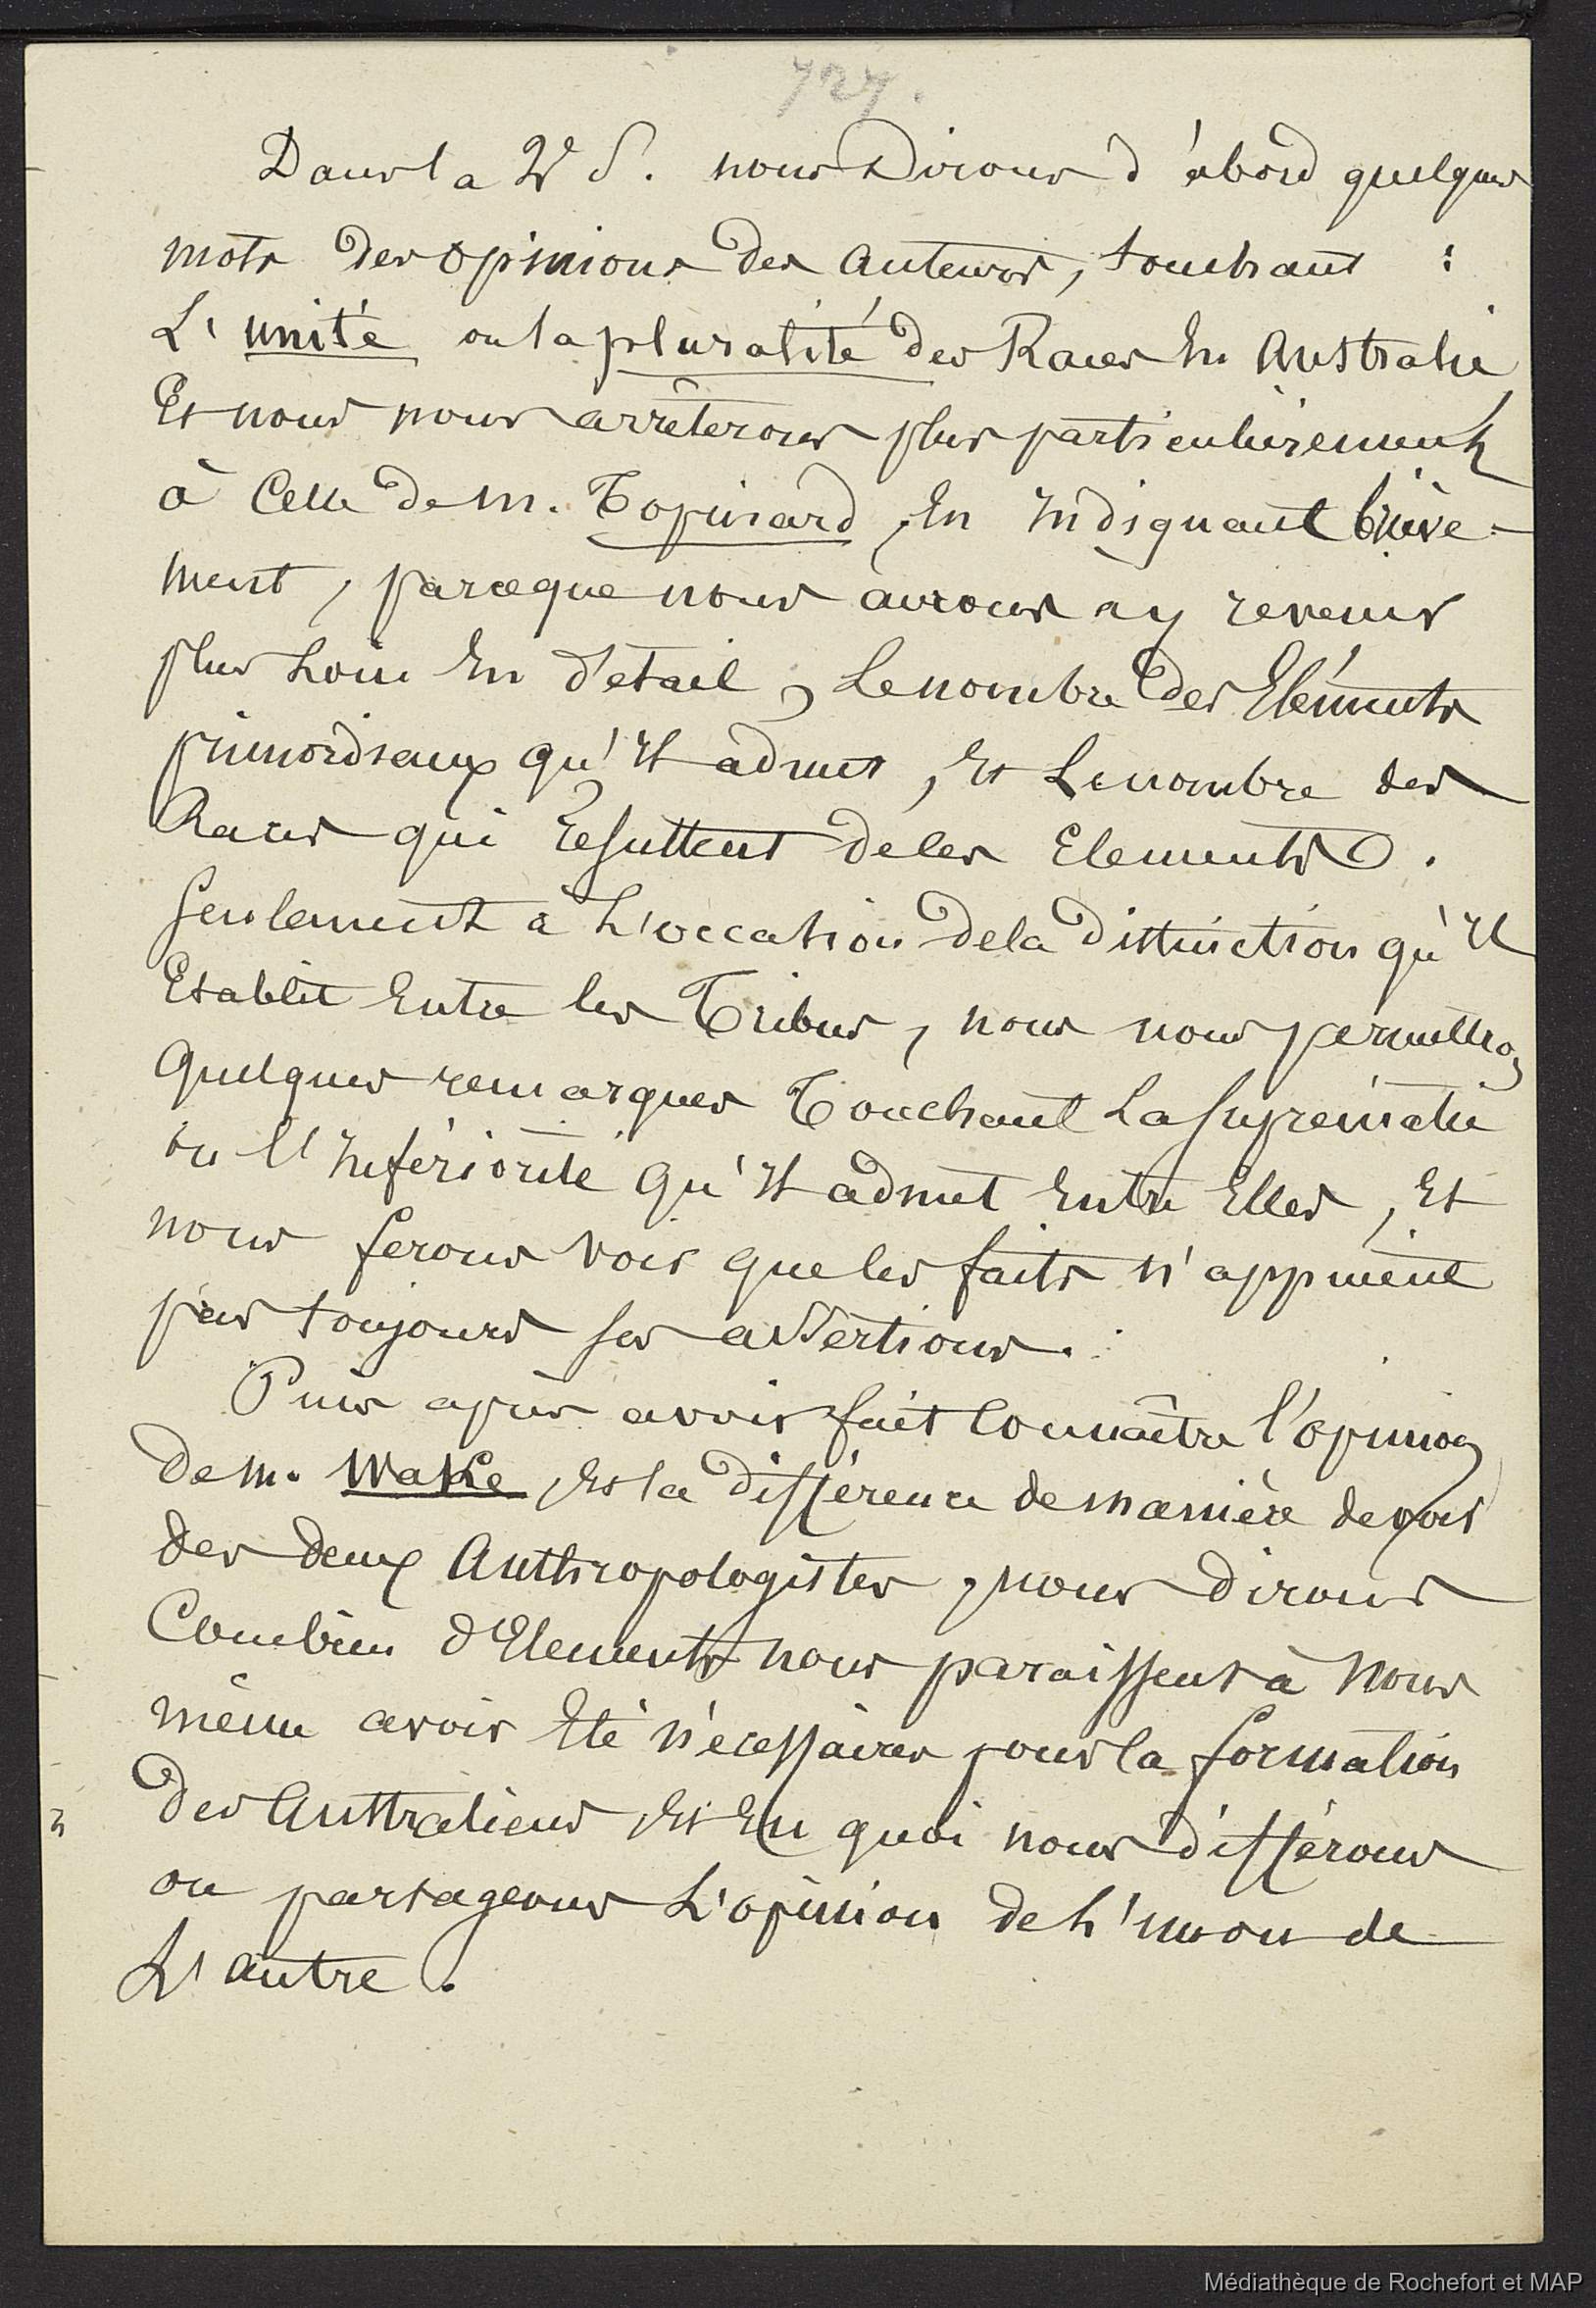 727.
Dans la 2e §. nous Dirons d'abord quelques
mots des opinions des auteurs, touchant :
L'unité ou la pluralité des Races En Australie,
Et nous nous arrêterons plus particulièrement
à Celle de M. Topinard, En Indiquant briève-
ment, parceque nous aurons a y revenir
plus Loin En détail, Le nombre des Eléments
primordiaux qu'Il admet, Et Le nombre des
Races qui résultent de ces Elements.
Seulement à L'occation de la distinction qu'Il
Etablit Entre les Tribus, nous nous permettrons
Quelques remarques Touchant La suprématie
ou l'Infériorité qu'Il admet Entre Elles, Et
nous ferons voir que les faits n'appuient
pas toujours ses assertions.
Puis après avoir fait Connaître l'opinion
de M. Wake, Et la différence de manière de voir
des deux Anthropologistes, nous dirons
Combien d'Elements nous paraissent à nous
même avoir Eté nécessaires pour la formation
des Australiens Et En quoi nous différons
ou partageons L'opinion de L'un ou de
L'autre.
Médiathèque de Rochefort et MAP